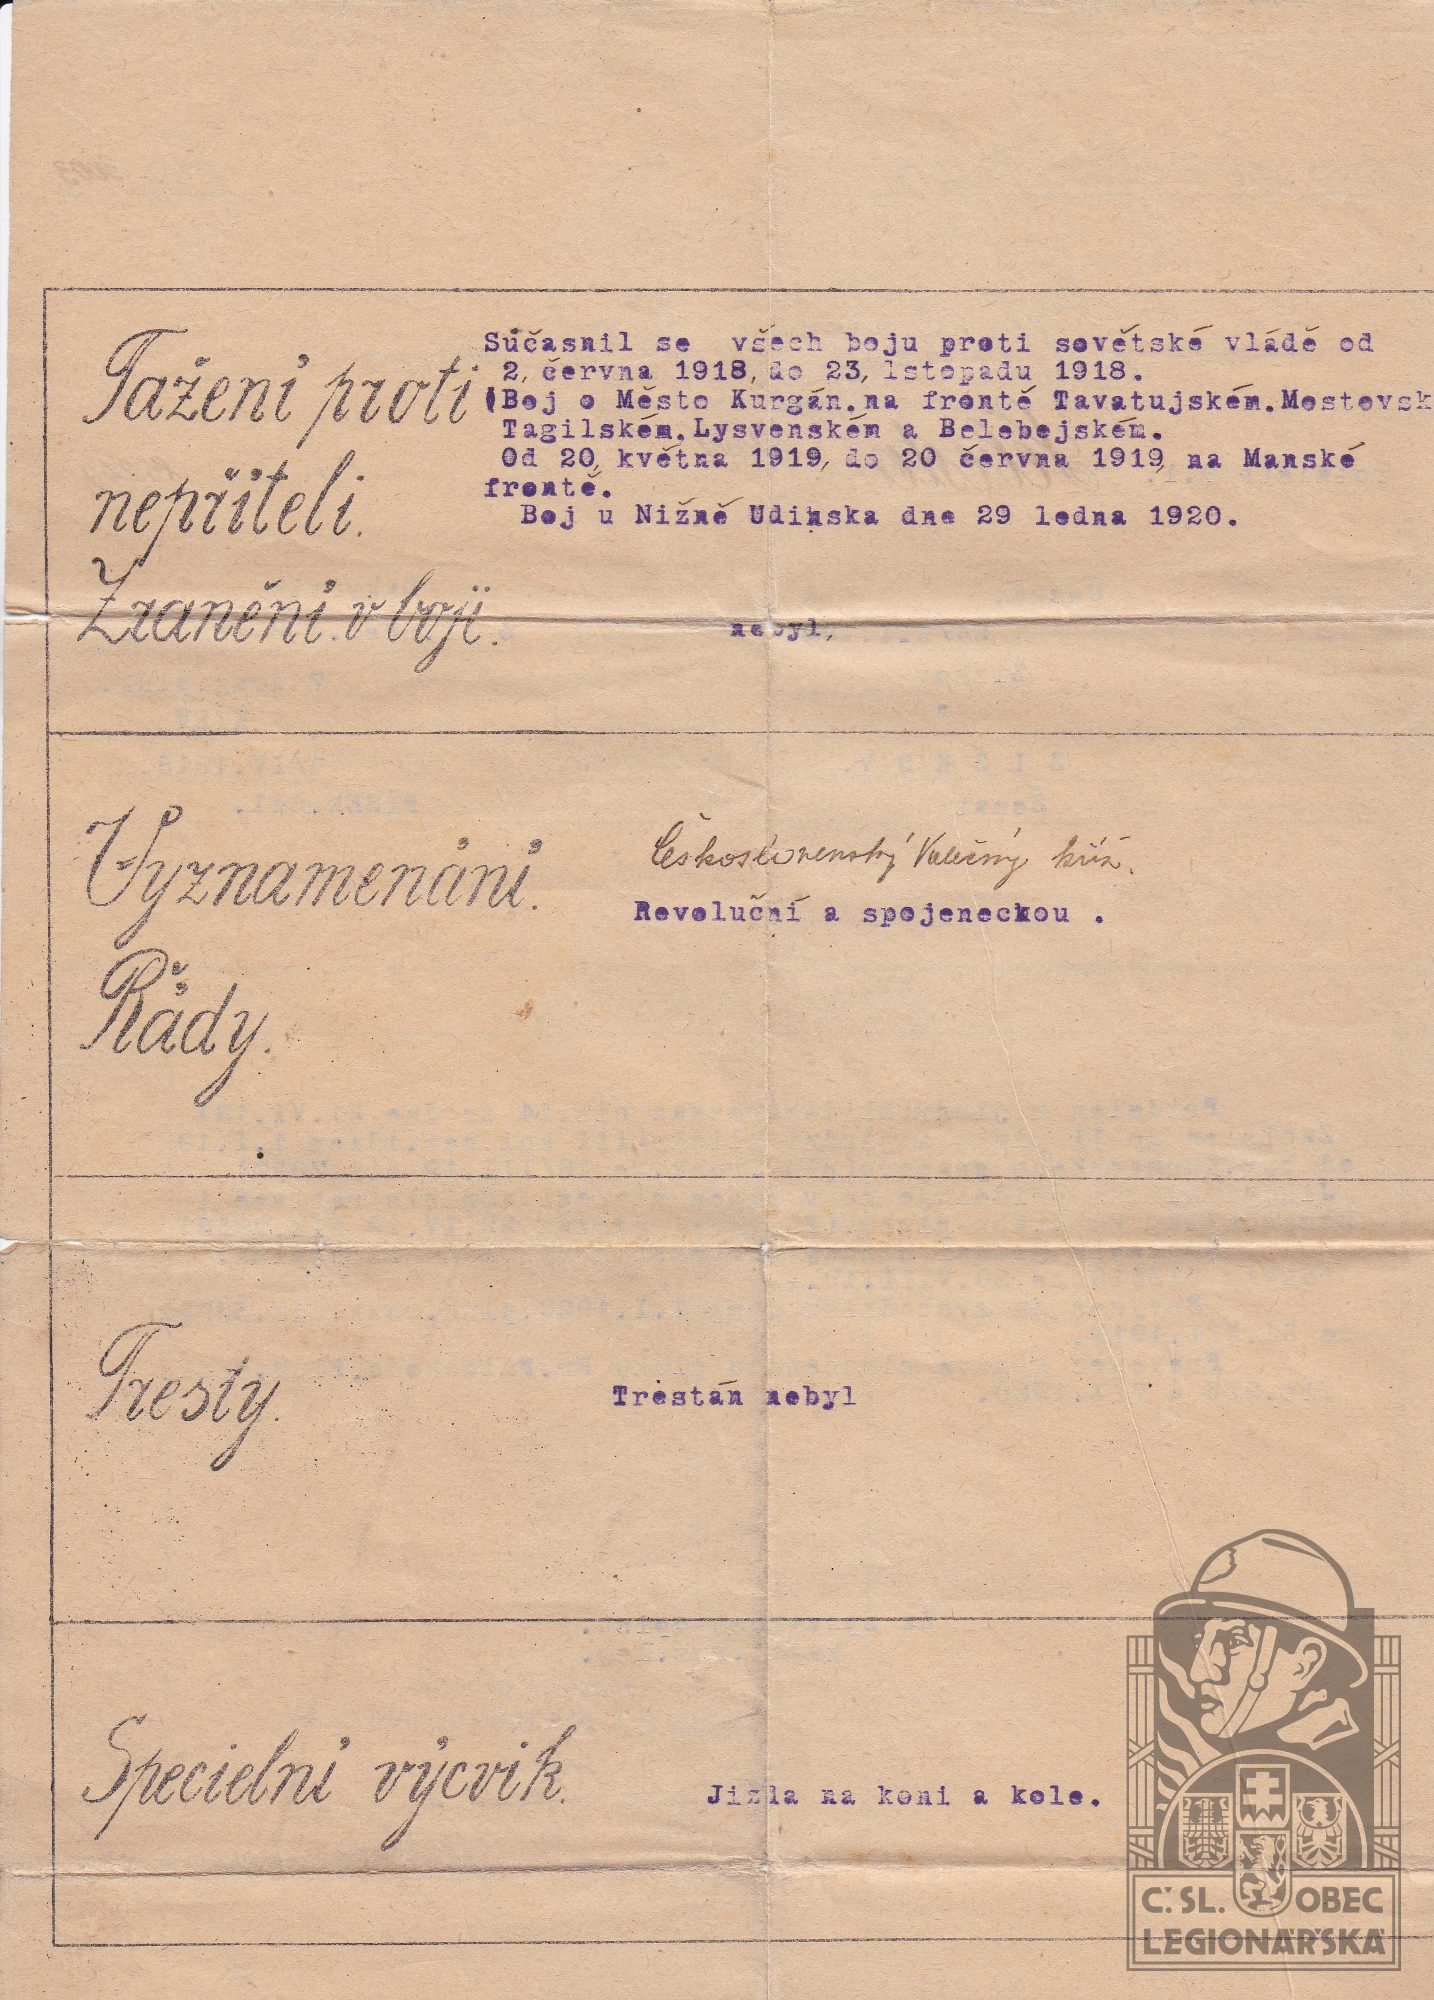 Tažení proti
nepříteli.
Súčasnil se všech boju proti sovětské vládě od
2, června 1918, do 23, lstopadu 1918.
Boj o Město Kurgán.na frontě Tavatujském.Mostovsk
Tagilském.Lysvenském a Belebejském.
Od 20, května 1919, do 20 června 1919, na Manské
frontě.
Boj u Nižně Udinska dne 29 ledna 1920.
Zranění v boji.
nebyl,
Vyznamenání.
Československý Válečný kříž.
Revoluční a spojeneckou .
Řády.
Tresty.
Trestán nebyl
Specielní výcvik.
Jizda na koni a kole.
Č. SL. OBEC
LEGIONÁŘSKÁ